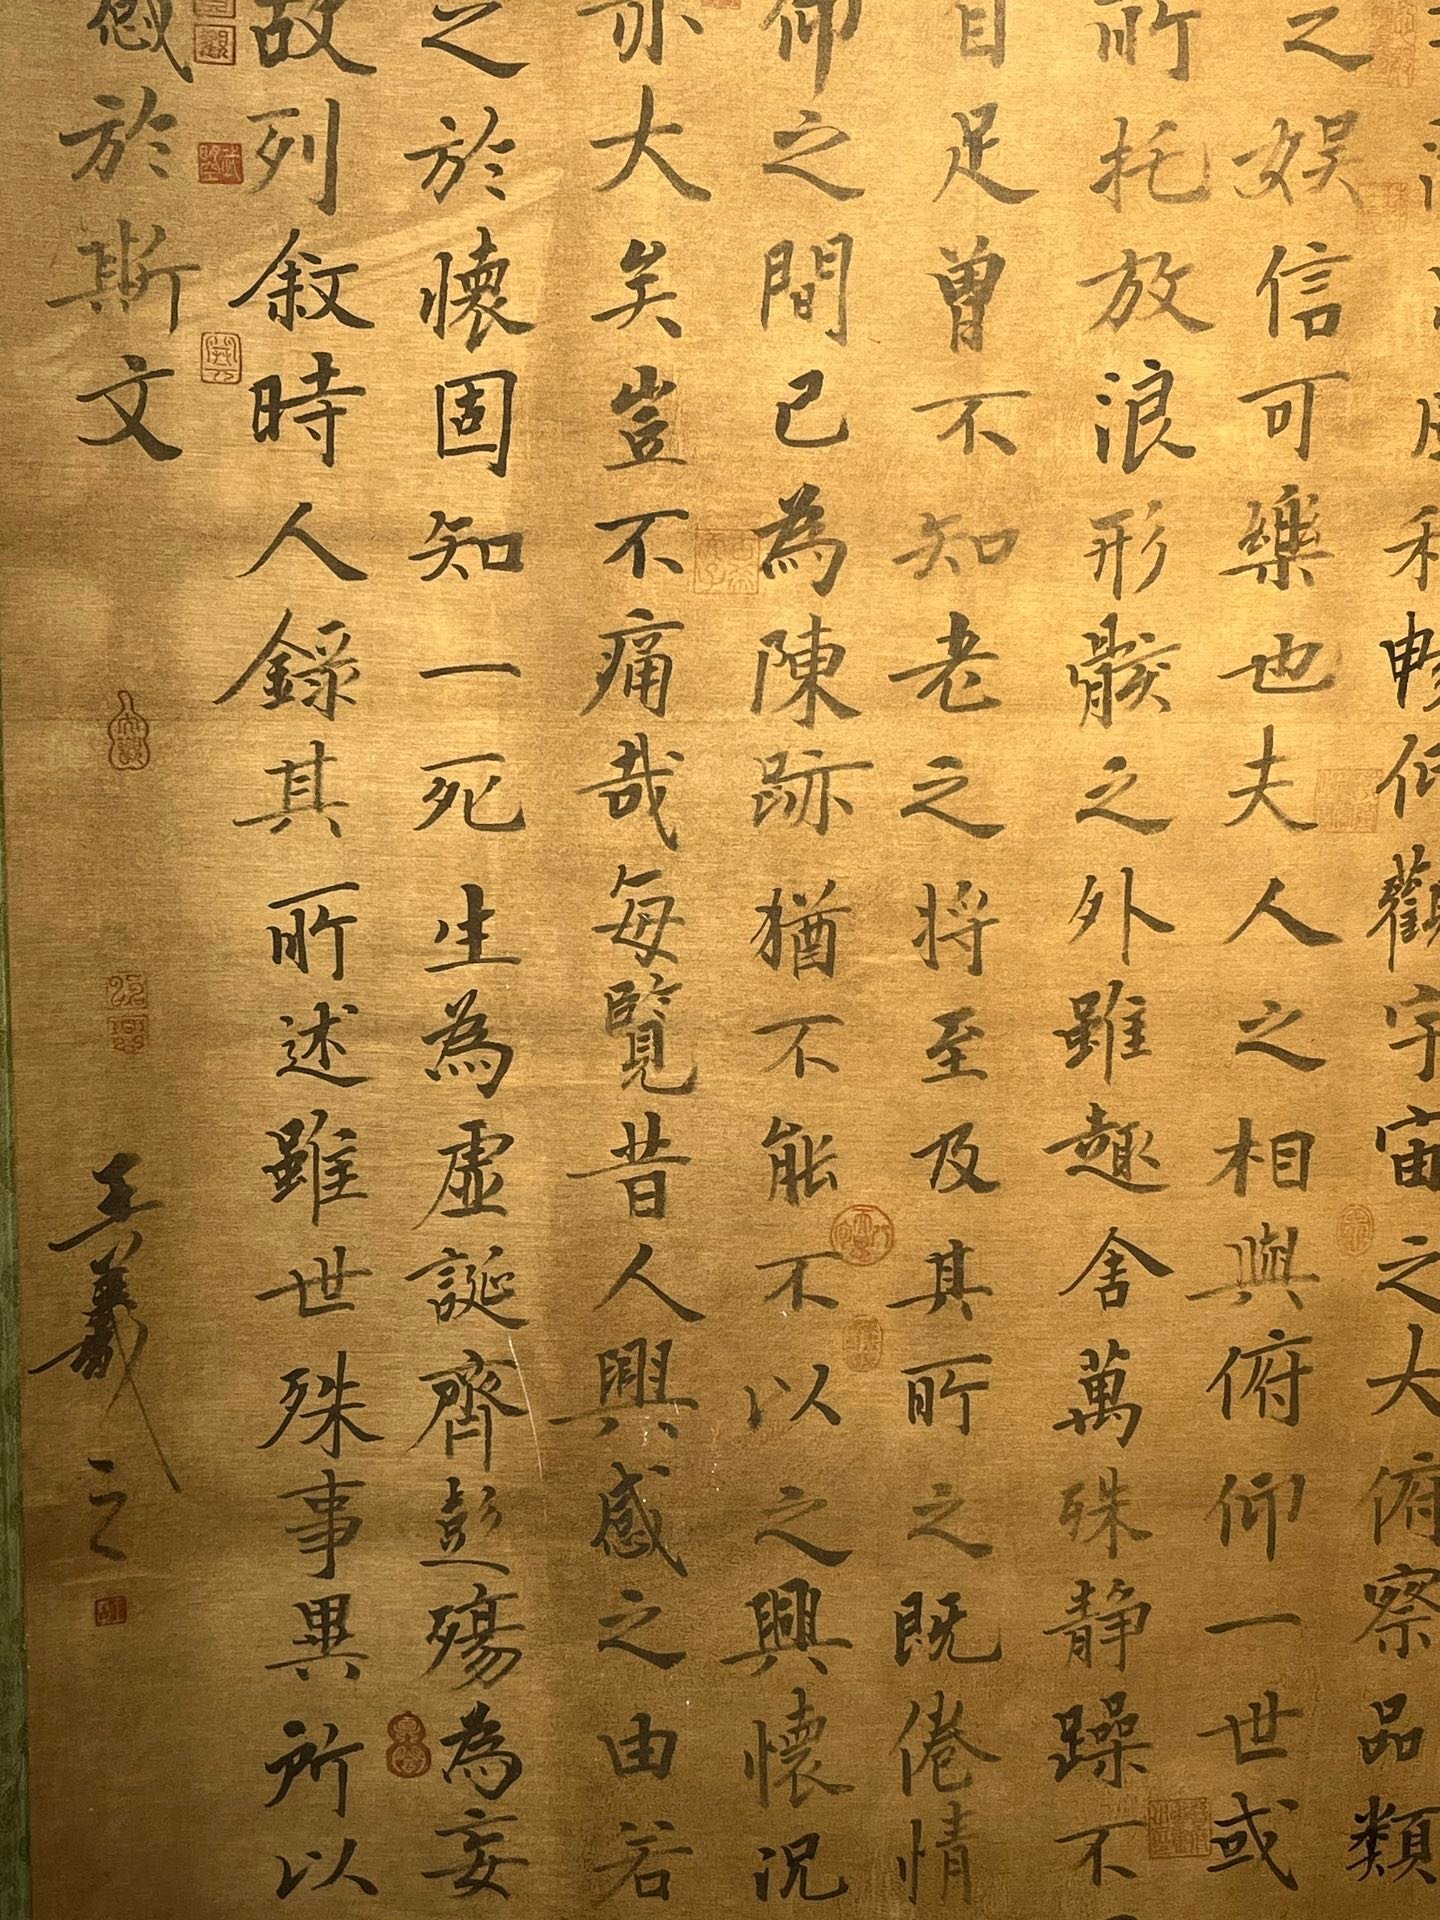 和暢仰觀宇宙之大俯察品類
之娛信可樂也夫人之相與俯仰一世或
所托放浪形骸之外雖趣舍萬殊靜躁不
自足曾不知老之將至及其所之既倦情
仰之間已為陳跡猶不能不以之興懷況
亦大矣豈不痛哉每覽昔人興感之由若
之於懷固知一死生為虛誕齊彭殤為妄
故列敘時人錄其所述雖世殊事異所以
感於斯文
王羲之